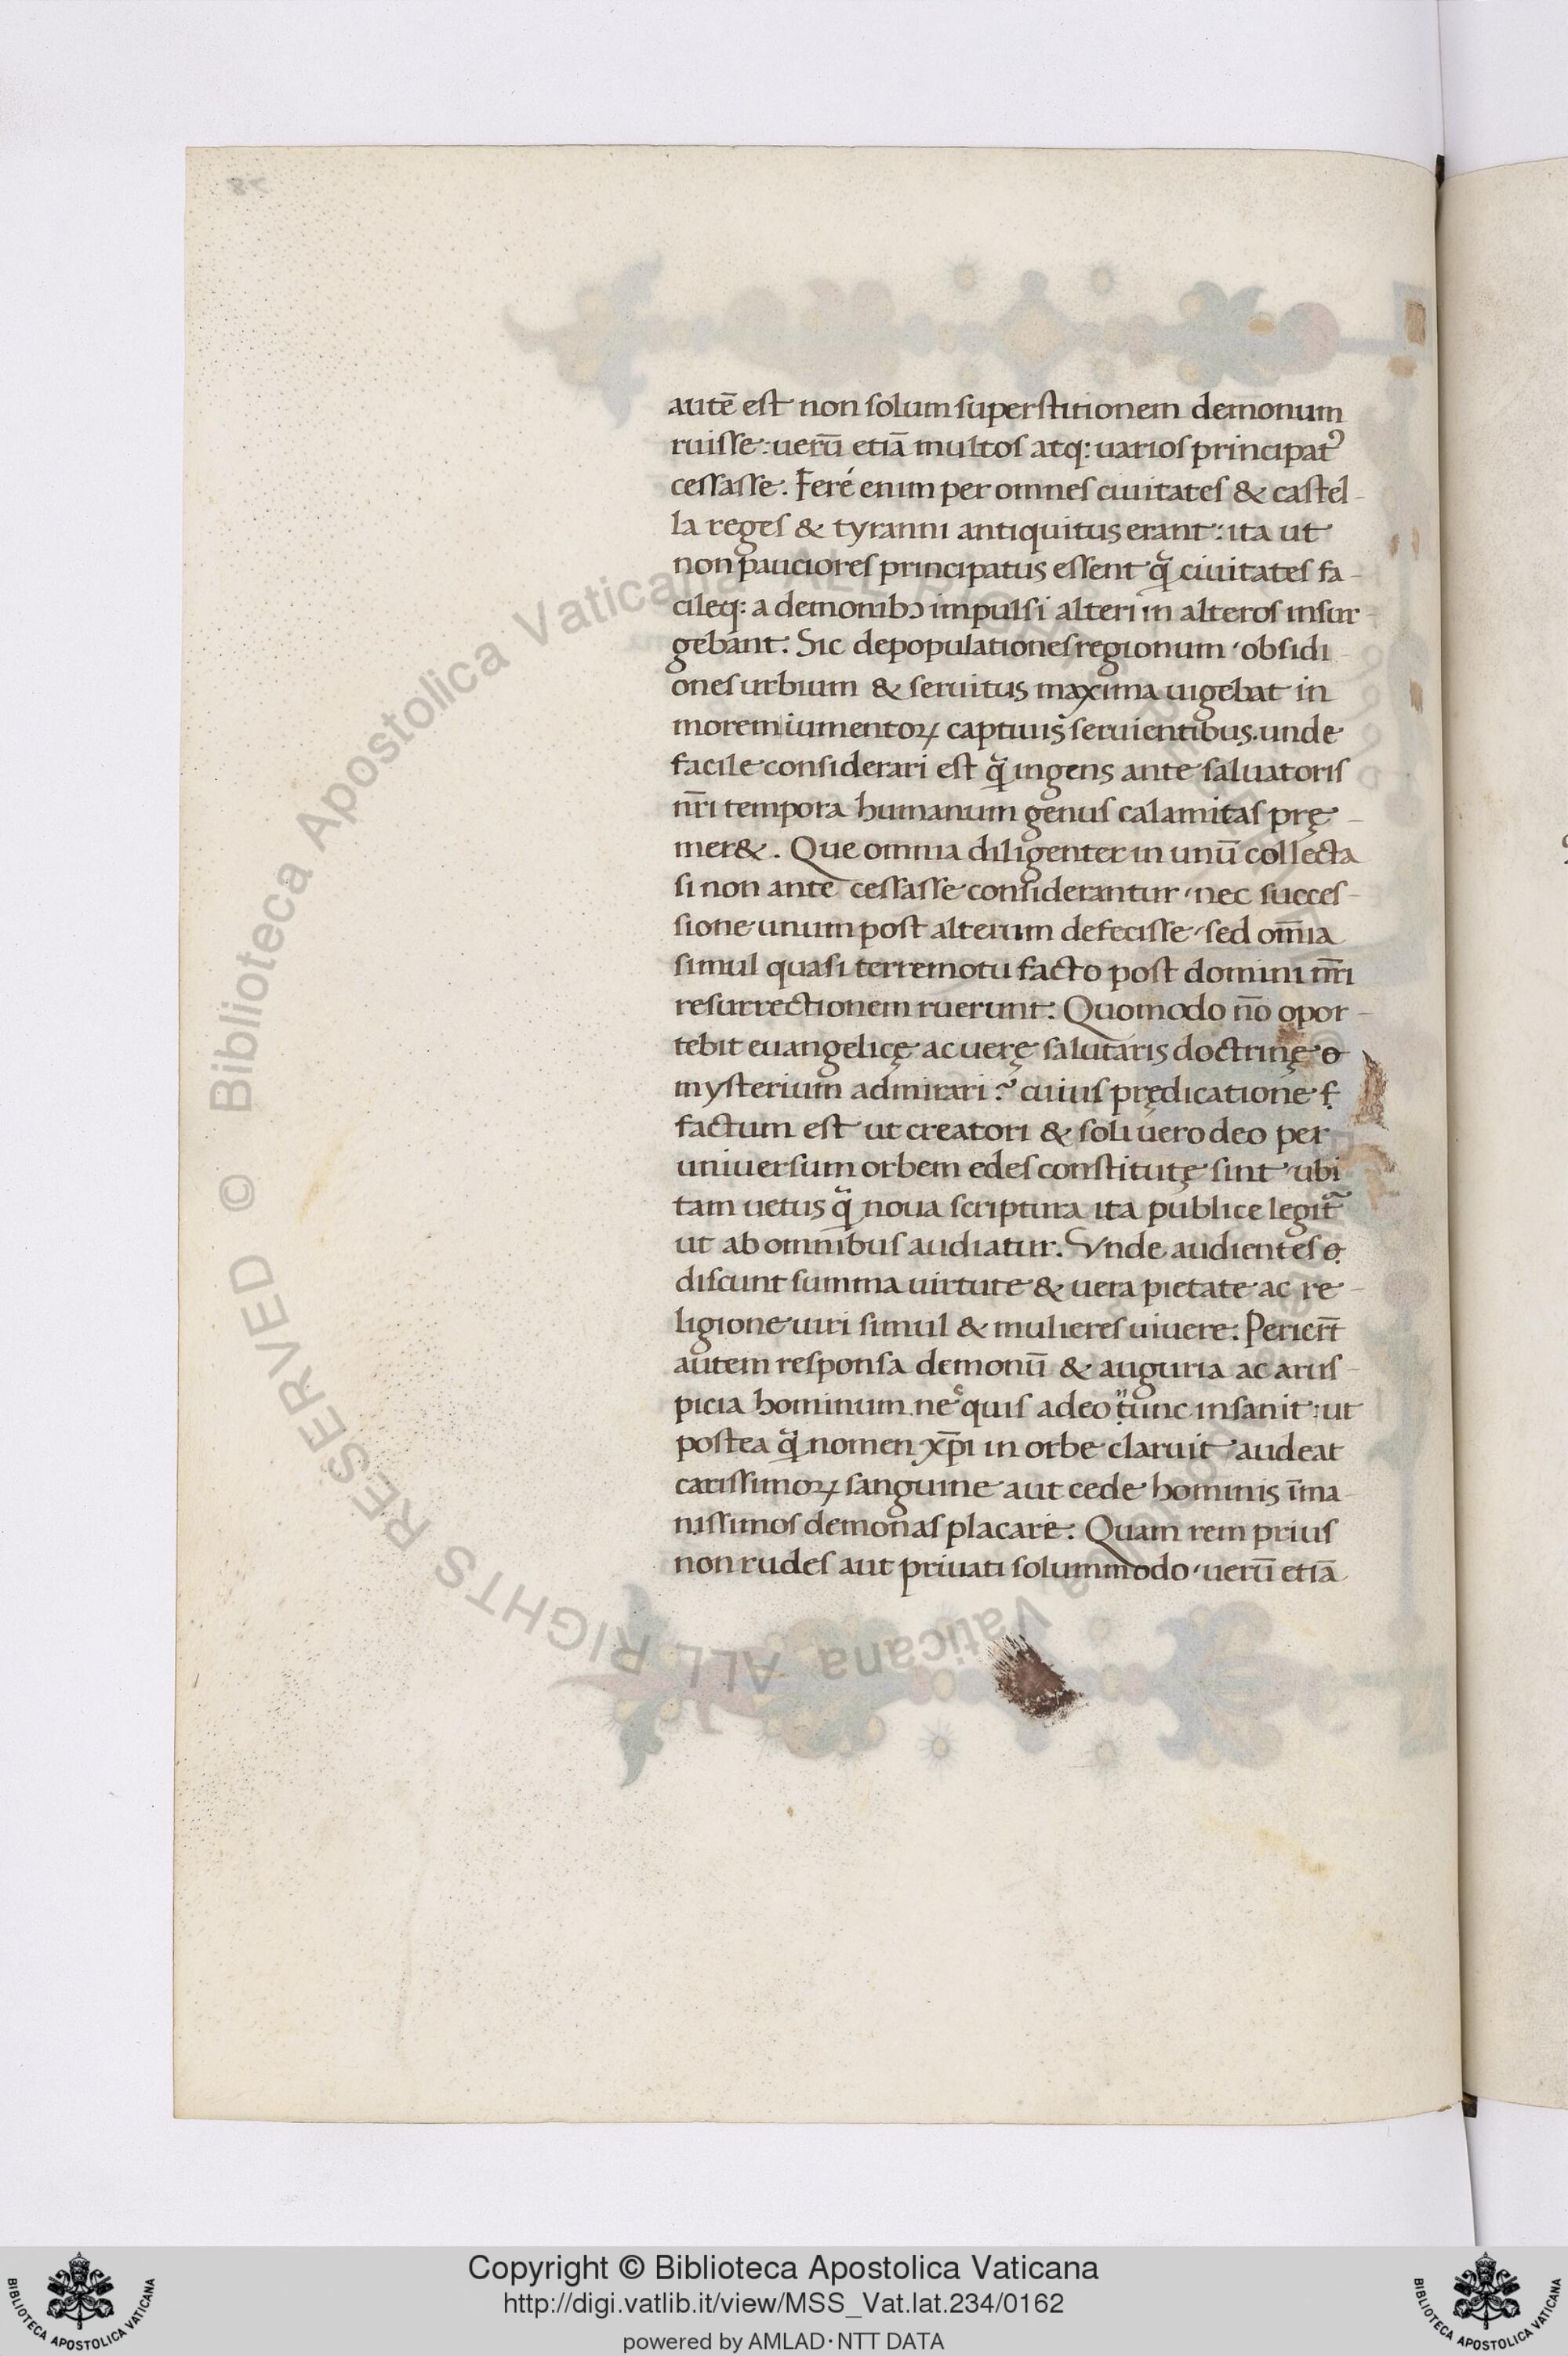 autē est non solum superstitionem demonum
ruisse: uerū etiā multos atq: uarios principatꝰ
cessasse. Feré enim per omnes ciuitates & castel-
la reges & tyranni antiquitus erant: ita ut
non pauciores principatus essent qᷓ ciuitates fa-
cileq: a demonibꝫ impulsi alteri in alteros insur-
gebant. Sic depopulationes regionum, obsidi-
ones urbium & seruitus maxima uigebat in
morem iumentoꝝ captiuis seruientibus. unde
facile considerari est qᷓ ingens ante saluatoris
nr̄i tempora humanum genus calamitas prę-
mer&. Que omnia diligenter in unū collecta
si non ante cessasse considerantur, nec succes-
sione unum post alterum defecisse, sed om̄ia
simul quasi terremotu facto post domini nr̄i
resurrectionem ruerunt. Quomodo nō opor-
tebit euangelicę ac uerę salutaris doctrinę
mysterium admirari? cuius prędicatione
factum est ut creatori & soli uero deo per
uniuersum orbem edes constitutę sint, ubi
tam uetus qᷓ noua scriptura ita publice legit᷑
ut ab omnibus audiatur. Vnde audientes
discunt summa uirtute & uera pietate ac re-
ligione uiri simul & mulieres uiuere. Perier̄t
autem responsa demonū & auguria ac arus-
picia hominum nec quis adeo tunc insanit: ut
postea qᷓ nomen xp̄i in orbe claruit audeat
carissimoꝝ sanguine aut cede hominis īma-
nissimos demonas placare. Quam rem prius
non rudes aut priuati solummodo, uerū etiā
© Biblioteca Apostolica Vaticana ALL RIGHTS RESERVED
Copyright © Biblioteca Apostolica Vaticana
http://digi.vatlib.it/view/MSS_Vat.lat.234/0162
powered by AMLAD·NTT DATA
BIBLIOTECA APOSTOLICA VATICANA
BIBLIOTECA APOSTOLICA VATICANA